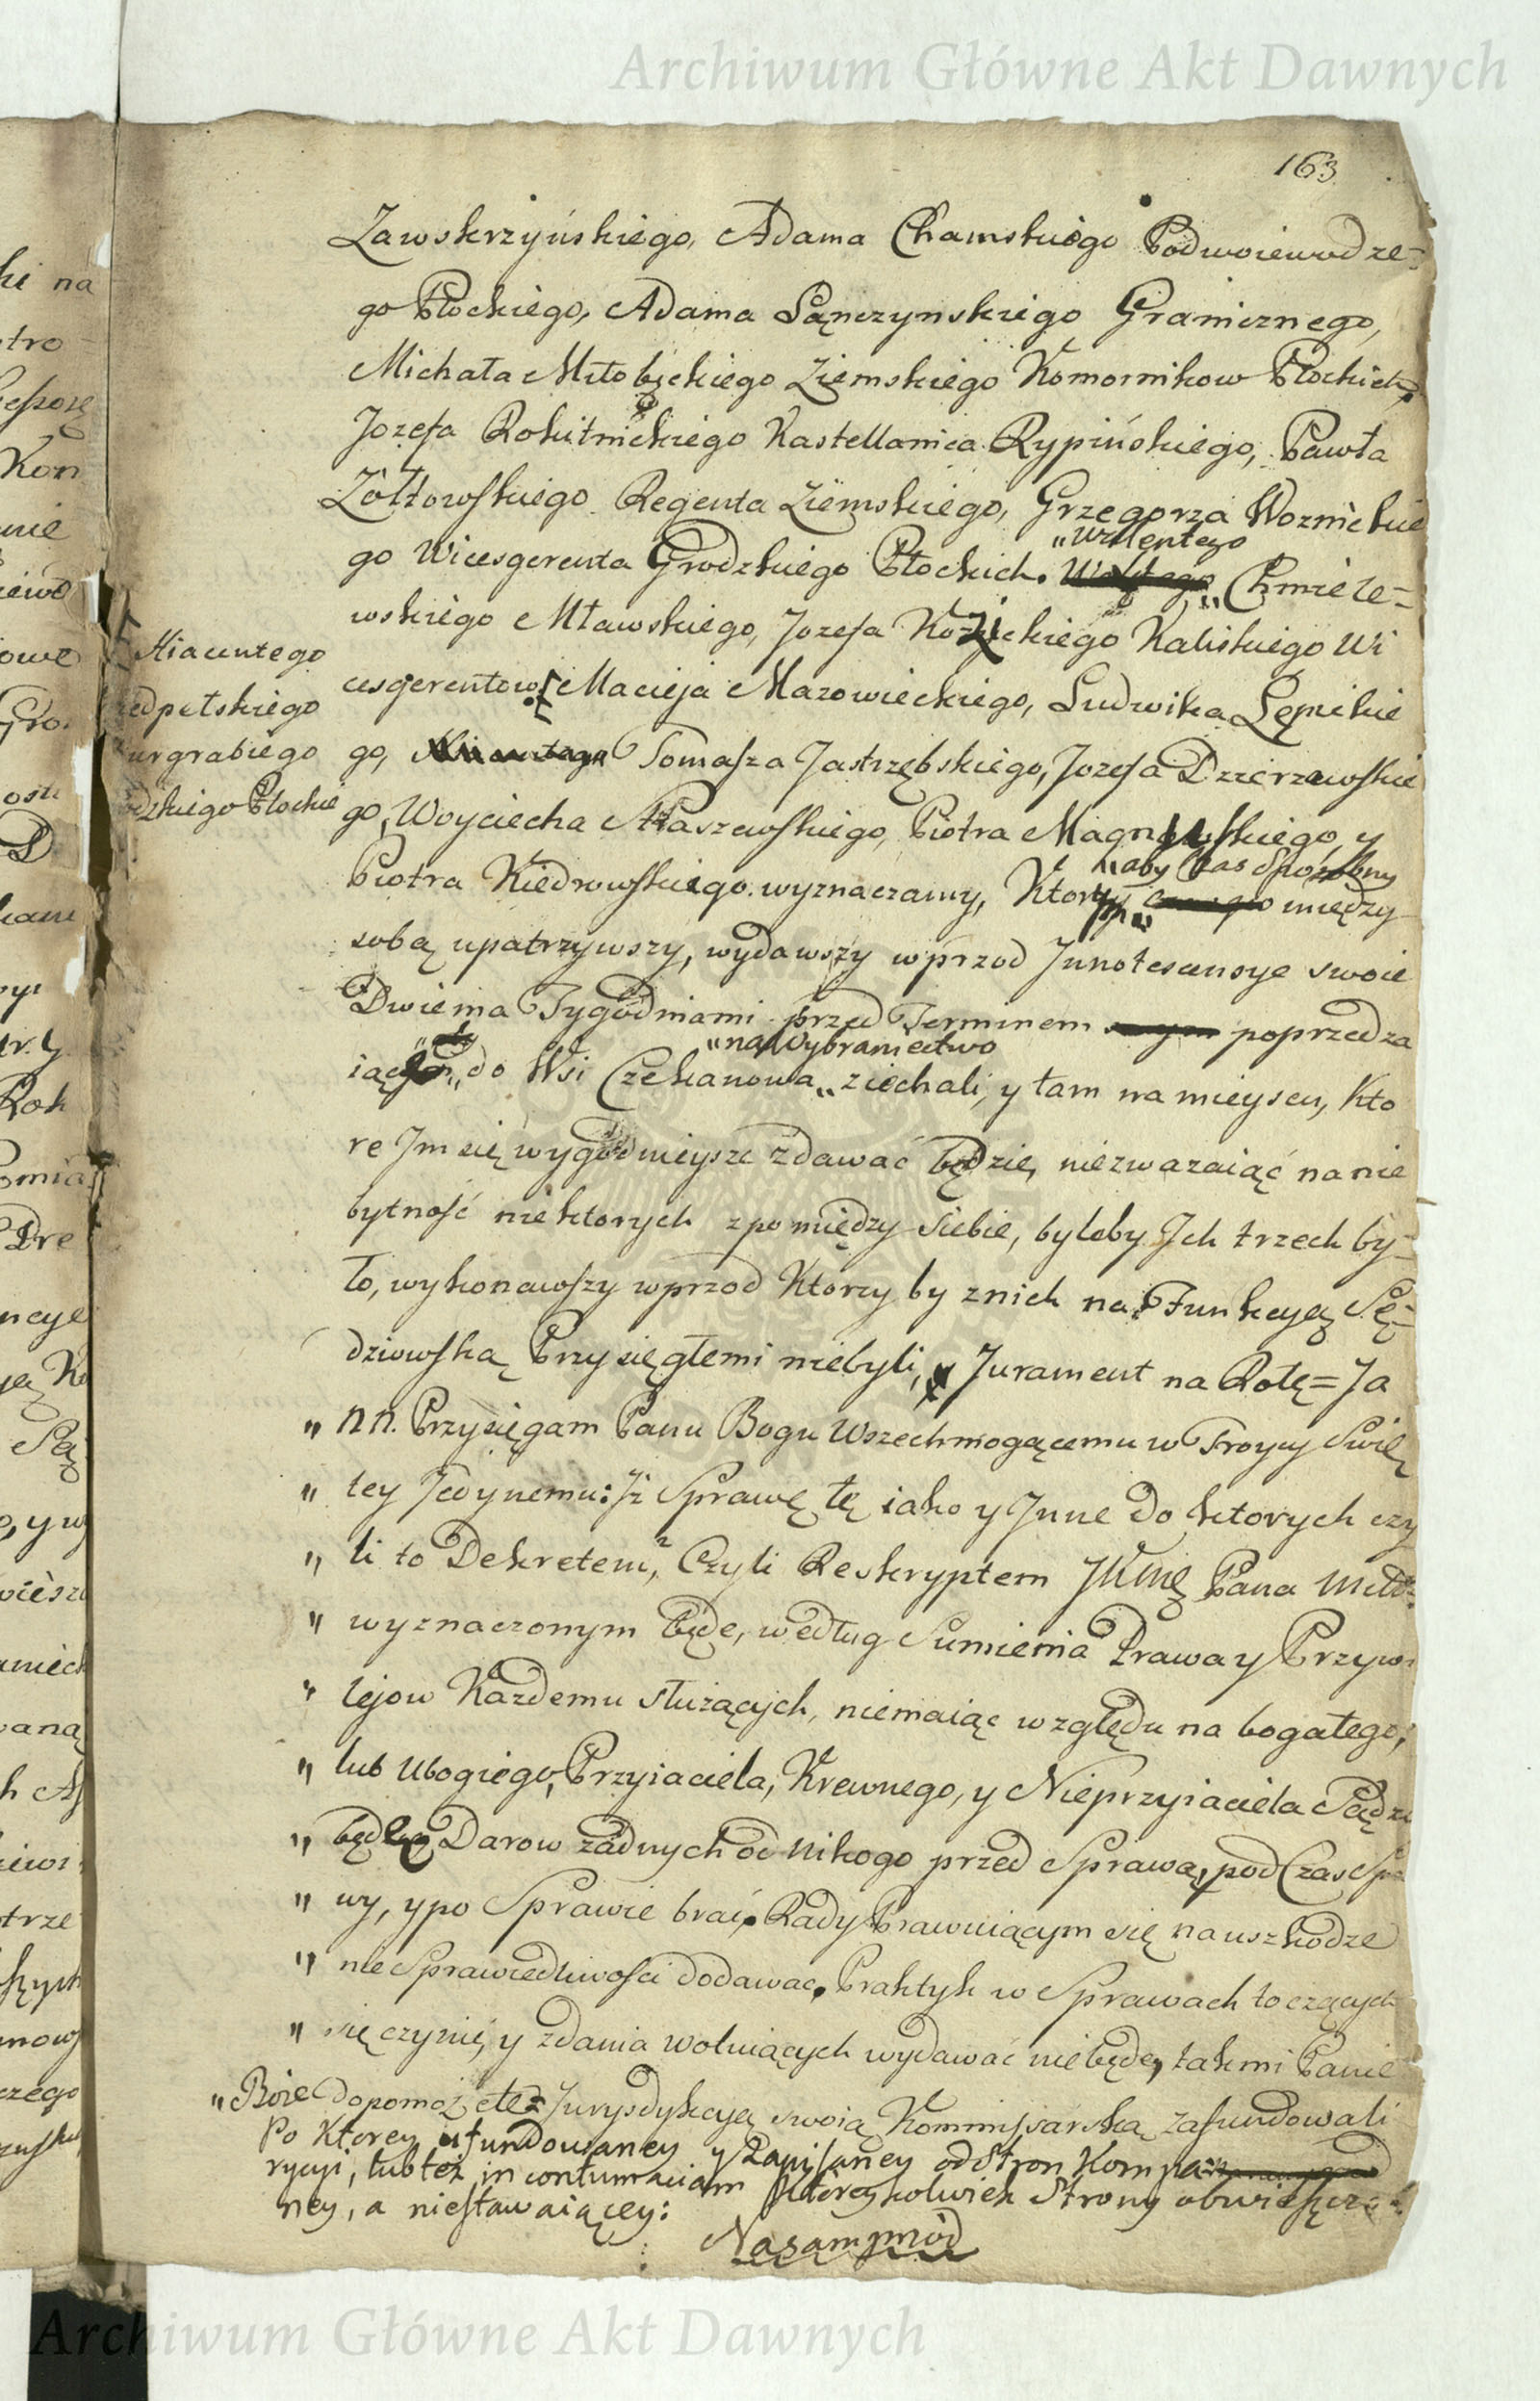 Archiwum Główne Akt Dawnych
163
Zawskrzyńskiego, Adama Chamskiego Podwoiewodze=
go Płockiego, Adama Łączynskiego Granicznego,
Michała Miłobęckiego Ziemskiego Komornikow Płockich,
Jozefa Rokitnickiego Kastellanica Rypińskiego, Pawła
Zółtowskiego Regenta Ziemskiego, Grzegorza Woznickie
go Wicesgerenta Grodzkiego Płockich. „Walentego„ Chmiele=
wskiego Mławskiego, Jozefa Kozickiego Kaliskiego Wi
cesgerentow, Macieja Mazowieckiego, Ludwika Lępickie
Hiacintego
Burgrabiego
go, Tomasza Jastrzębskiego, Jozefa Dzierzewskie
go, Woyciecha Piotra y
Piotra Kiedrowskiego wyznaczamy, Ktorzy „aby Czas Sposobny między
sobą upatrzywszy, wydawszy wprzod Innotescencye swoie
Dwiema Tygodniami przed Terminem poprzedza
do Wsi Czekanowa „na Wybraniectwo„ ziechali, y tam na mieyscu, Kto
re Im się wygodnieysze zdawać będzie, niezwazaiąć na nie
bytność niektorych zpomiędzy siebie, byleby Ich trzech by=
ło, wykonawszy wprzod Ktorzy by znich na Funkcyą Sę=
dziowską Przysięgłemi niebyli, Jurament na Rotę= Ja
„ NN. Przysięgam Panu Bogu Wszechmogącemu w Troycy Swię
„ tey Jedynemu: Iż Sprawę tę iako y Inne do ktorych czy
„ li to Dekretem, Czyli Reskryptem JKMci Pana Miło:
„ wyznaczonym będę, według Sumienia Prawa y Przywi
„ lejow Kazdemu służących, niemaiąc względu na bogatego,
„ lub Ubogiego, Przyiaciela, Krewnego, y Nieprzyiaciela Sądzi
„ będę Darow żadnych od nikogo przed Sprawą, pod Czas Spra
„ wy, y po Sprawie brać, Rady Prawuiącym się na uszkodze
„ nie Sprawiedliwości dodawac, Praktyk w Sprawach toczących
„ się czynić, y zdania wotuiących wydawać niebędę, tak mi Panie
„ Boże dopomoż etc= Jurysdykcyą swoią Kommissarską zafundowali
Po Ktorey ufundowaney y Zapisaney od Stron Kompa=
rycyi, lub też in contumaciam Ktoreykolwiek Strony obwieszczo
ney, a niestawaiącey:
Nasamprzód
Archiwum Główne Akt Dawnych